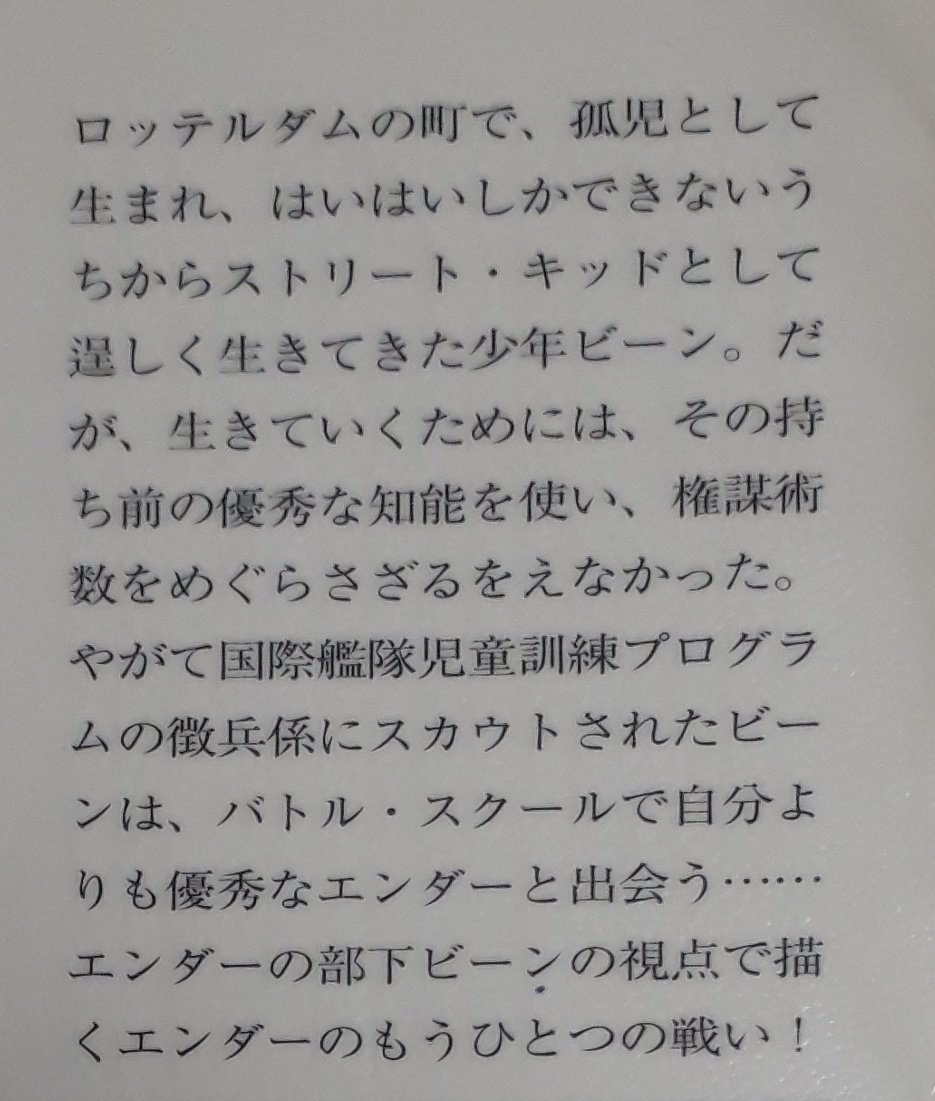 ロッテルダムの町で、孤児として
生まれ、はいはいしかできないう
ちからストリート・キッドとして
逞しく生きてきた少年ビーン。だ
が、生きていくためには、その持
ち前の優秀な知能を使い、権謀術
数をめぐらさざるをえなかった。
やがて国際艦隊児童訓練プログラ
ムの徴兵係にスカウトされたビー
ンは、バトル・スクールで自分よ
りも優秀なエンダーと出会う……
エンダーの部下ビーンの視点で描
くエンダーのもうひとつの戦い！